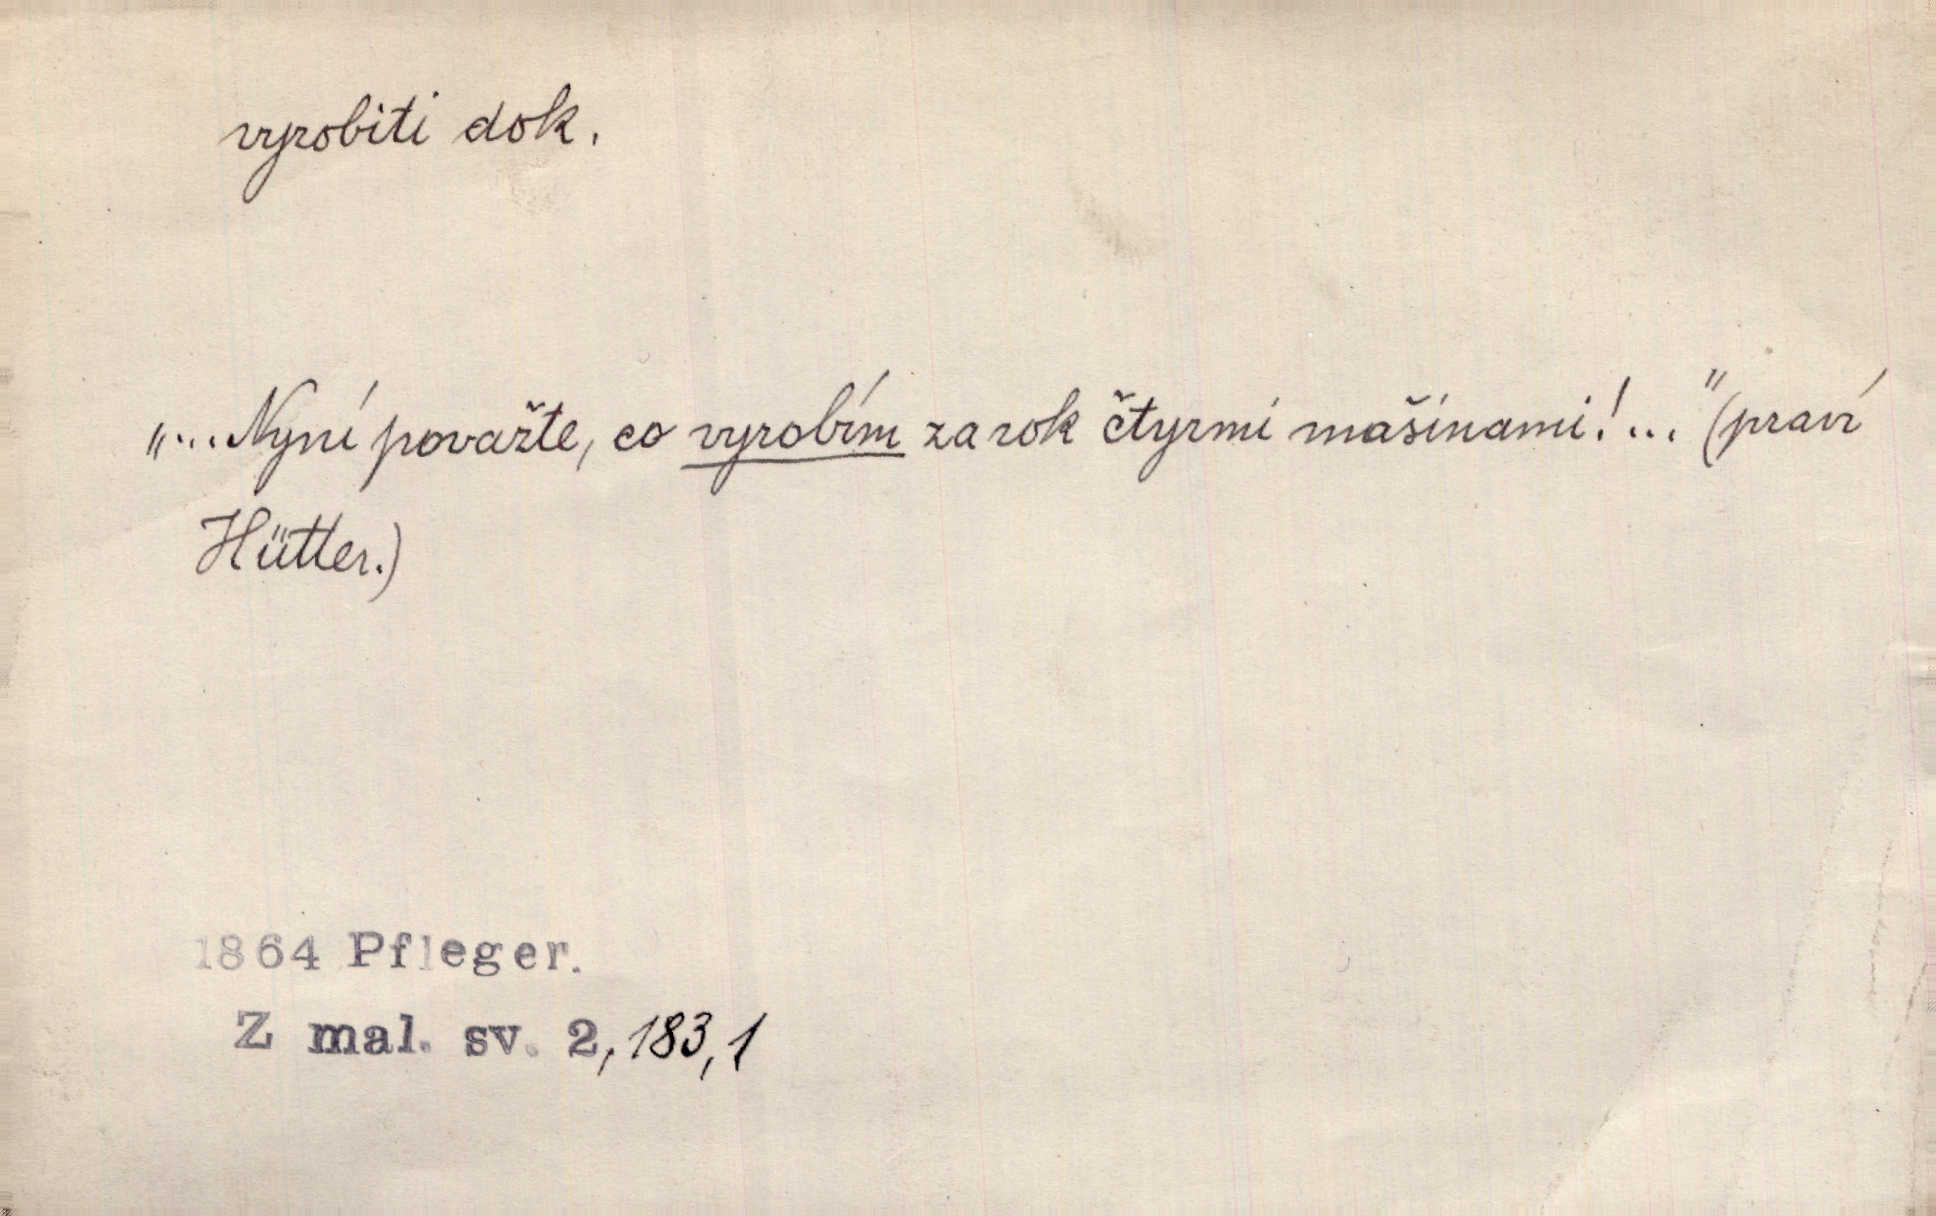 vyrobiti dok.
„... Nyní považte, co vyrobím za rok čtyrmi mašinami!..." (praví
Hütter.)
1864 Pfleger.
Z mal. sv. 2, 183, 1